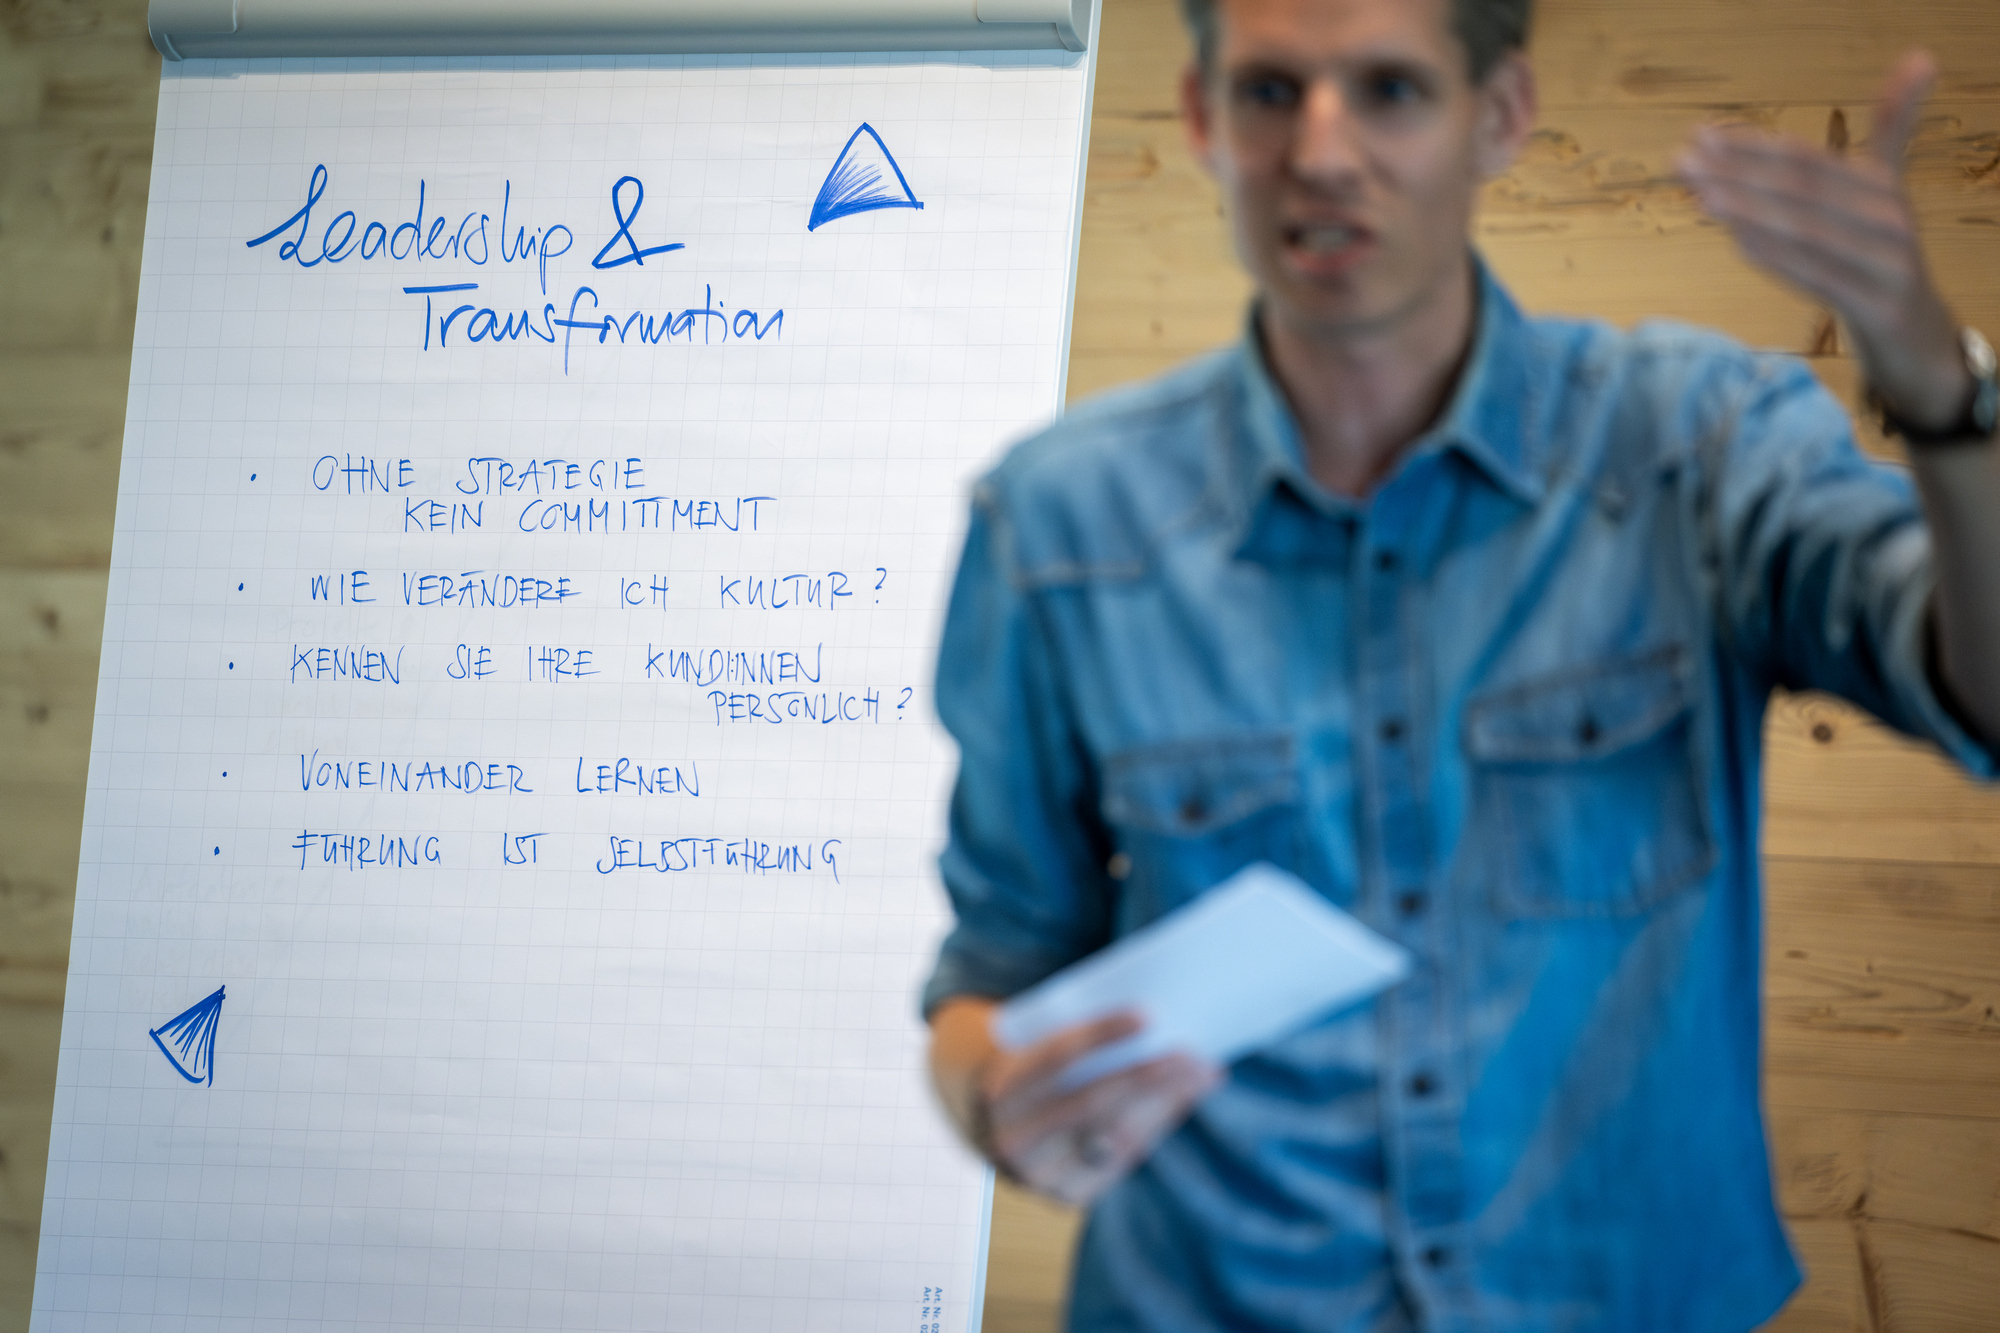 Leadership &
Transformation
· OHNE STRATEGIE
KEIN COMMITTMENT
· WIE VERÄNDERE ICH KULTUR?
· KENNEN SIE IHRE KUND:INNEN
PERSÖNLICH?
· VONEINANDER LERNEN
· FÜHRUNG IST SELBSTFÜHRUNG
Art. Nr. 02
Art. Nr. 02